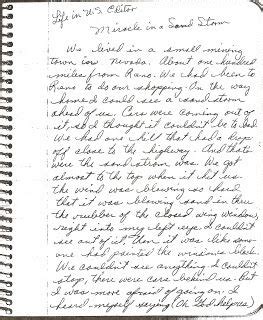 Life in U.S. Editor
Miracle in a Sand Storm
We lived in a small mining
town in Nevada. About one hundred
miles from Reno. We had been to
Reno to do our shopping. On the way
home I could see a sand storm
ahead of us. Cars were coming out of
it, so I thought it couldn't be to bad
We had one hill that had a drop
off close to the highway. And thats
were the sand storm was. We got
almost to the top when it hit us.
the wind was blowing so hard
that it was blowing sand in thru
the rubber of the closed wing window,
right into my left eye. I couldn't
see out of it, then it was like some-
one had painted the windows black.
We couldn't see anything. I couldn't
stop, there were cars behind me. But
I was more afraid of going on. I
heard myself saying (Oh God help me)